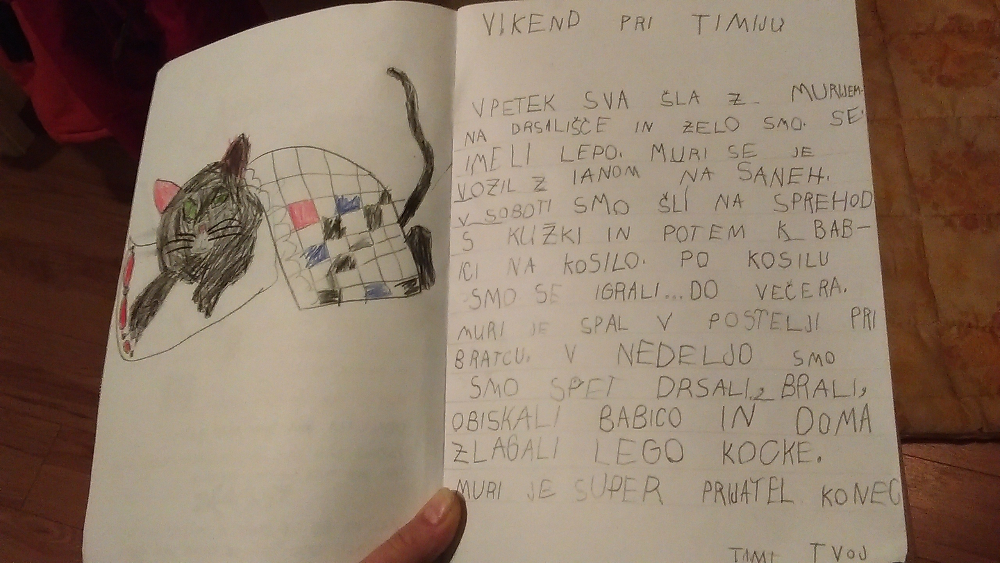 VIKEND PRI TIMIJU
V PETEK SVA ŠLA Z MURIJEM
NA DRSALIŠČE IN ZELO SMO SE
IMELI LEPO. MURI SE JE
VOZIL Z IANOM NA SANEH.
V SOBOTI SMO ŠLI NA SPREHOD
S KUŽKI IN POTEM K BAB-
ICI NA KOSILO. PO KOSILU
SMO SE IGRALI... DO VEČERA.
MURI JE SPAL V POSTELJI PRI
BRATCU. V NEDELJO SMO
SMO SPET DRSALI, BRALI,
OBISKALI BABICO IN DOMA
ZLAGALI LEGO KOCKE.
MURI JE SUPER PRIJATEL KONEC
TIMI TVOJ